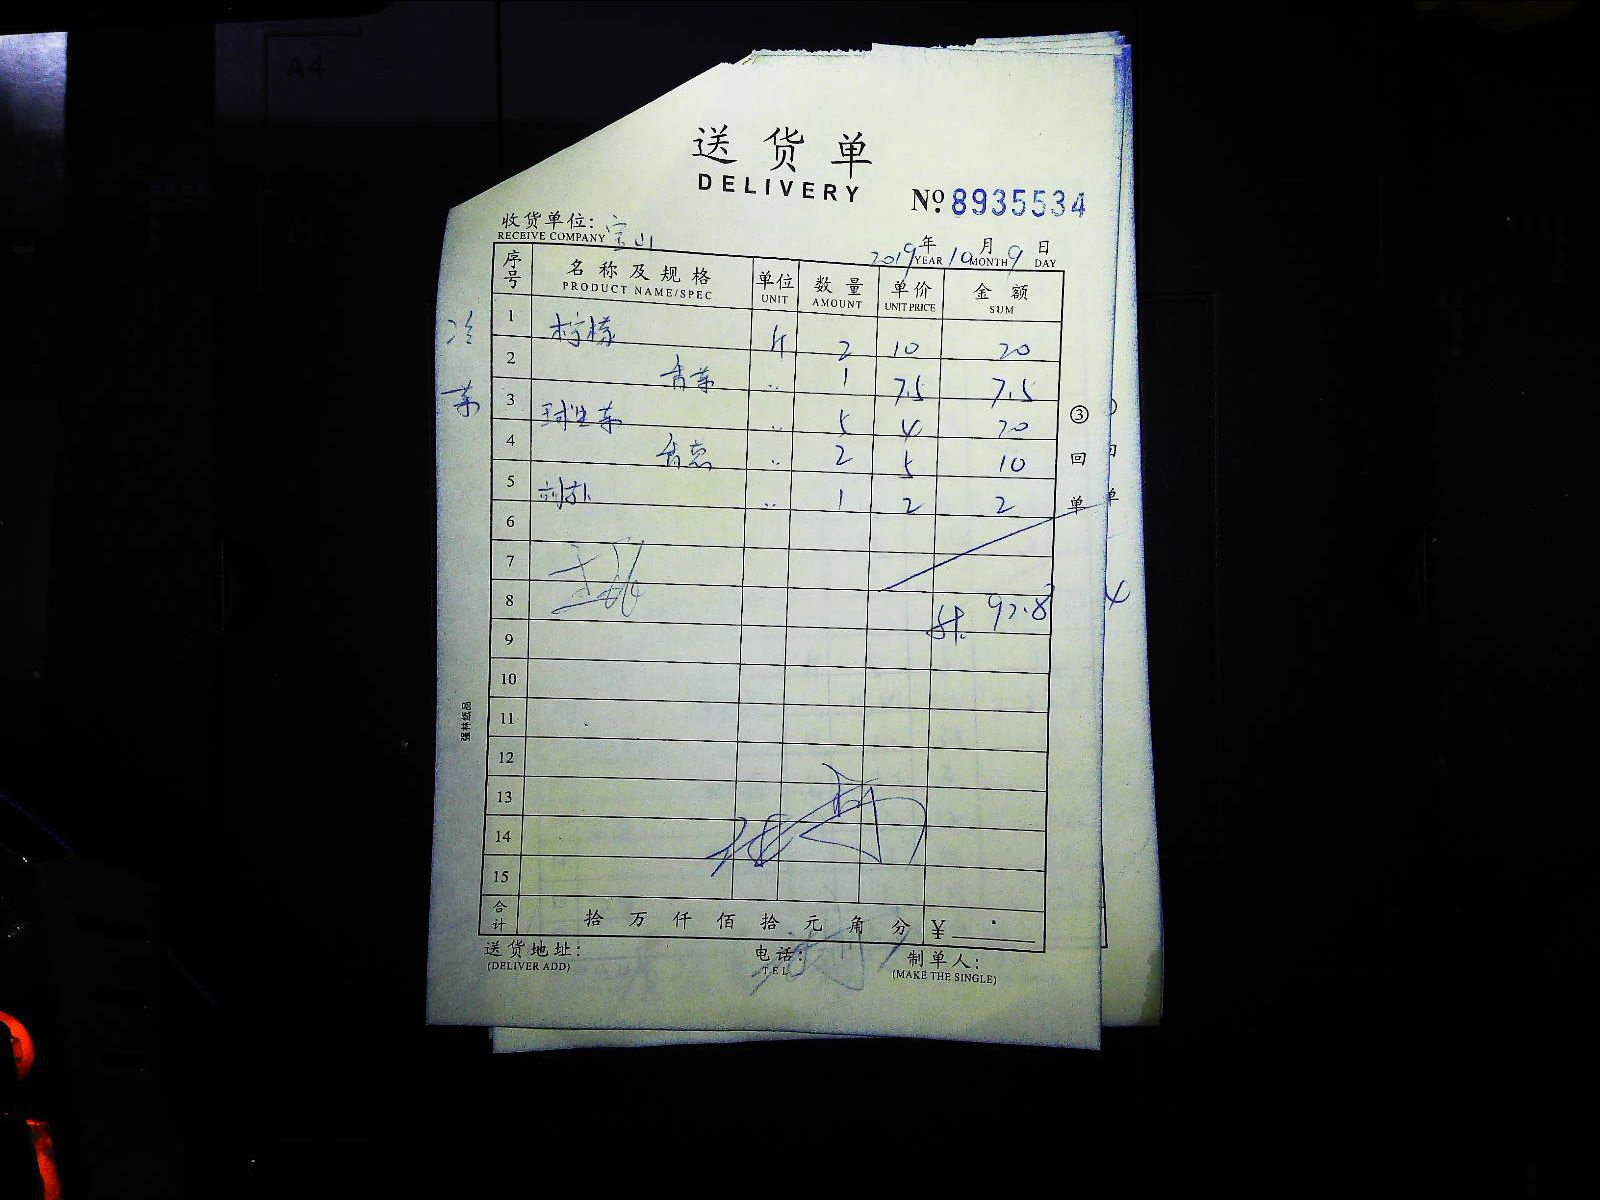 A4
送货单
DELIVERY
No. 8935534
收货单位: 宝山
RECEIVE COMPANY
2019年 10月 9日
YEAR MONTH DAY
序号 名称及规格 单位 数量 单价 金额
PRODUCT NAME/SPEC UNIT AMOUNT UNIT PRICE SUM
冷菜
1 柠檬 斤 2 10 20
2 香菜 .. 1 7.5 7.5
3 球生菜 .. 5 4 20
4 香葱 .. 2 5 10
5 .. 1 2 2
6
7
8
9
10
11
12
13
14
15
③回单
强林纸品
合计 拾 万 仟 佰 拾 元 角 分 ¥ .
送货地址: 电话: 制单人:
(DELIVER ADD) TEL (MAKE THE SINGLE)